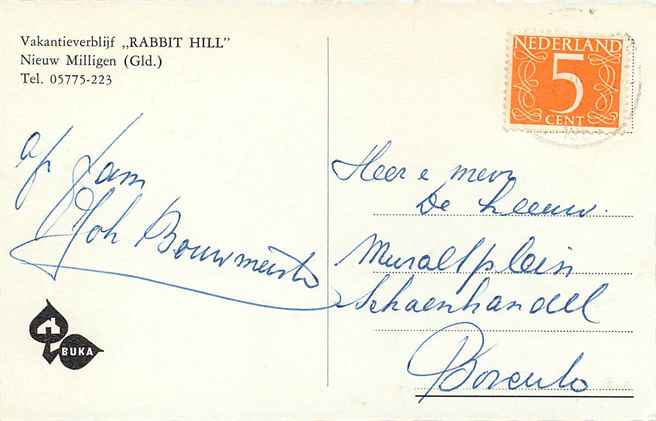 Vakantieverblijf „RABBIT HILL"
Nieuw Milligen (Gld.)
Tel. 05775-223
NEDERLAND
5
CENT
Fam
Joh Bouwmeester
BUKA
Heer e mevr
De Leeuw.
Muraltplein
Schoenhandel
Borculo